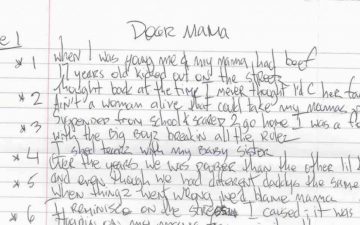 Dear Mama
e 1
* 1 when I was young me & my mama had beef
17 years old kicked out on the streetz
* 2 thought back at the time I never thought I'd C her
Ain't a woman alive that could take my mamas
* 3 Suspended from school & scared 2 go home I was a
with the Big Boyz breakin all the Rulez
* 4 I shed tearz with my Baby Sister
Over the years we was poorer than the other lil
* 5 and even though we had different daddys the same
When thingz went wrong we'd blame mama
* 6 I reminisce on the stress I caused, it was